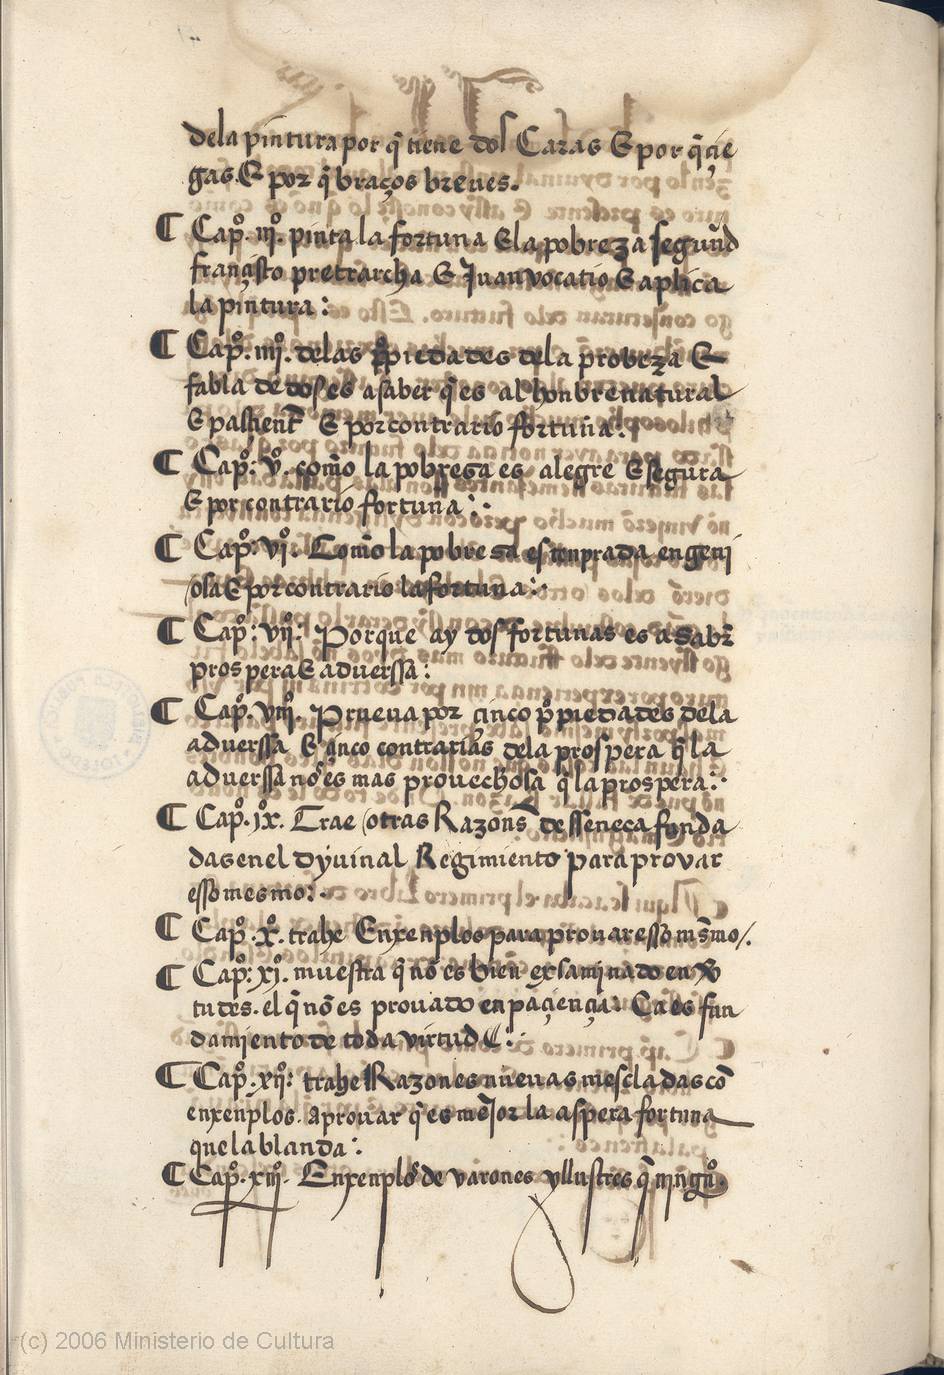 dela pintura por q̃ tiene dos Caras E por q̃ çie
gas. E por q̃ braços breues.
¶ Capº. iijº. pinta la fortuna E la pobreza segund
françisco pretrarcha E Juan vocaçio E aplica
la pintura :
¶ Capº. iiijº. delas ꝓpiedades dela probeza E
fabla de doses a saber q̃ es al honbre natural
E paçient̃ E por contrario fortuna :
¶ Capº: vº. como la pobresa es alegre E segura
E por contrario fortuna :.
¶ Capº: viº: Como la pobresa es tenprada engeni
osa E por contrario la fortuna :.
¶ Capº: vijº: Porque ay dos fortunas es a sabr̃
prospera E aduerssa :
¶ Capº. viijº. Prueua por çinco ꝓpiedades dela
aduerssa E çinco contrarias dela prospera q̃ la
aduerssa nõ es mas prouechosa q̃ la prospera :.
¶ Capº. ixº. Trae otras Razons̃ de sseneca funda
das en el dyuinal Regimiento para prouar
esso mesmo :.
¶ Capº. xº. trahe Enxenplos para prouar esso ms̃mo /.
¶ Capº: xiº. muestra q̃ nõ es bien exsaminado en v̉
tudes. el q̃ nõ es prouado en paçiençia : Ca es fun
damiento de toda virtud :
¶ Capº. xijº: trahe Razones nueuas mescladas cõ
enxenplos. aprouar q̃ es mejor la aspera fortuna
que la blanda :
¶ Capº. xiijº. Enxenplos de varones yllustres q̃ ningũº.
(c) 2006 Ministerio de Cultura